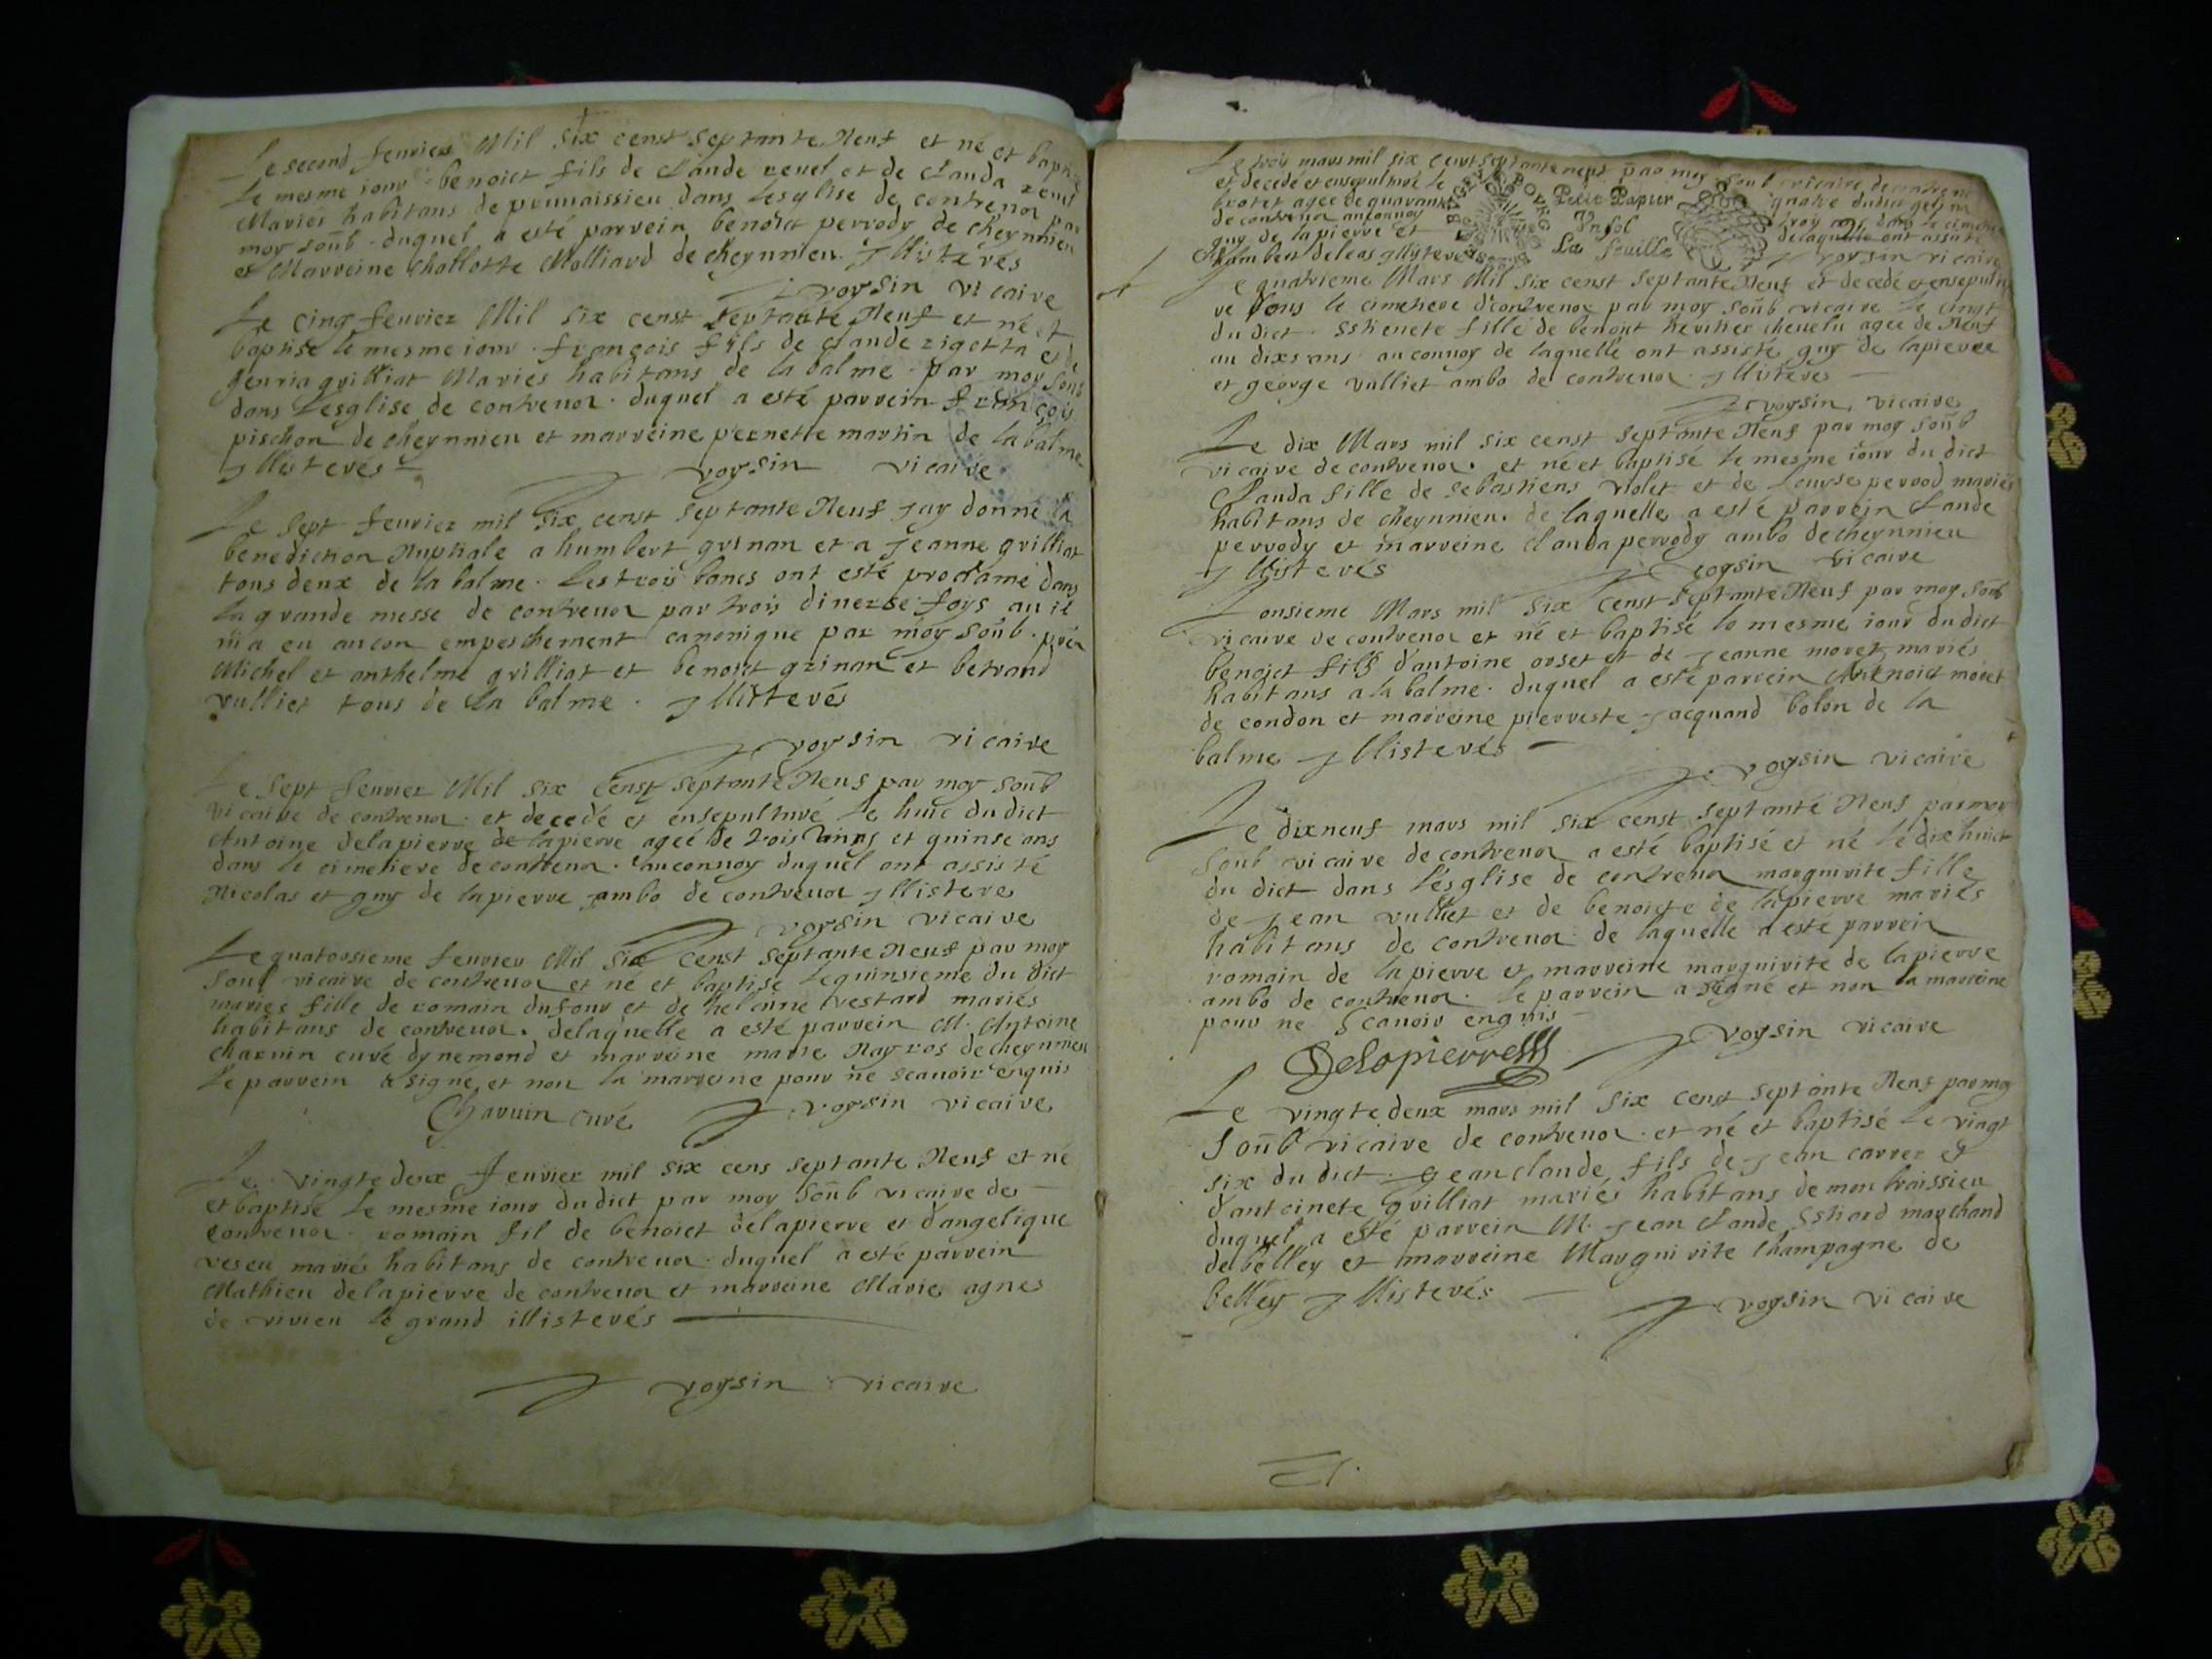 Le second feuvier Mil six censt septante Neuf et né et baptisé
le mesme iour benoict fils de Claude revel et de Clauda
Mariés habitans de dans lesglise de contrevoz par
moy soub. duquel a esté parrein benoict perrody de cheynnieu
et Marreine Chollotte Molliard de cheynnieu. Illisterés
J voysin vicaire
Le cinq feuvier Mil six censt septante Neuf et né et
baptisé le mesme iour. françois fils de claude rigotta et de
grilliat Mariés habitans de la balme. par moy soub
dans lesglise de contrevoz. duquel a esté parrein françois
pischon de cheynnieu et marreine pernette martin de la balme
Illisterés
J voysin vicaire
Le sept feuvier mil six censt septante Neuf jay donné la
benediction Nuptiale a humbert grinan et a jeanne grilliat
tous deux de la balme. Les trois bancs ont esté proclamé dans
la grande messe de contrevoz par trois diverse foys au il
ni a eu aucon empeschement canonique par moy soub.
Michel et anthelme grilliat et benoict grinan et betrand
vulliet tous de la balme. Illisterés
J voysin vicaire
Le sept feuvier Mil six censt septante Neuf par moy soub
vicaire de contrevoz. et decedé et ensepulturé le huic du dict
Antoine delapierre agée de trois et quinse ans
dans le cimetiere de contrevoz. auconvoy duquel ont assisté
Nicolas et guy de lapierre ambo de contrevoz Illistere
J voysin vicaire
Le quatorsieme feuvier Mil six censt septante Neuf par moy
soub vicaire de contrevoz et né et baptisé le quinsieme du dict
fille de romain dufour et de helenne vestard mariés
habitans de contrevoz. delaquelle a esté parrein M. Antoine
charuin curé dynemond et marreine marie Nayros de cheynnieu
le parrein a signé et non la marreine pour ne scavoir enquis
Charuin curé J voysin vicaire
Le vingte deux feuvier mil six cens septante Neuf et né
et baptisé le mesme iour du dict par moy soub vicaire de
contrevoz. romain fil de benoict delapierre et dangelique
veseu mariés habitans de contrevoz. duquel a esté parrein
Mathieu delapierre de contrevoz et marreine Marie agnes
de virieu le grand illisterés
J voysin vicaire
Le trois mars mil six censt septante neuf par moy soub vicaire
et decedé et ensepulturé le quatre du dict
agée de quarante trois ans dans le cimetiere
de contrevoz auconvoy delaquelle ont assisté
guy de lapierre et J voysin vicaire
humbert deleas Illisterés
Petit Papier
Un sol
La feuille
Le quatrieme Mars Mil six censt septante Neuf et decedé et ensepultu
re dans le cimetiere d'contrevoz par moy soub vicaire le cinqt
du dict. fille de benoict agée de Neuf
au dixs ans auconvoy de laquelle ont assisté guy de lapierre
et george vulliet ambo de contrevoz Illisterés
J voysin vicaire
Le dix Mars mil six censt septante Neuf par moy soub
vicaire de contrevoz. et né et baptisé le mesme iour du dict
Clauda fille de sebastiens violet et de Louyse perrod mariés
habitans de cheynnieu. de laquelle a esté parrein Claude
perrody et marreine clauda perrody ambo de cheynnieu
Illisterés J voysin vicaire
Lonsieme Mars mil six censt septante Neuf par moy soub
vicaire de contrevoz et né et baptisé le mesme iour du dict
benoict fils d'antoine orset et de jeanne moret mariés
habitans a la balme. duquel a esté parrein benoict moret
de condon et marreine pierreste jacquand bolon de la
balme Illisterés
J voysin vicaire
Le dixneuf mars mil six censt septante Neuf par moy
soub vicaire de contrevoz a esté baptisé et né le dixhuict
du dict dans lesglise de contrevoz marguirite fille
de jean vulliet et de benoicte de lapierre mariés
habitans de contrevoz de laquelle a esté parrein
romain de lapierre et marreine marguirite de lapierre
ambo de contrevoz. le parrein a signé et non la marreine
pour ne scavoir enquis
Delapierre J voysin vicaire
Le vingte deux mars mil six censt septante Neuf par moy
soub vicaire de contrevoz. et né et baptisé le vingt
six du dict. jean claude fils de jean carrer et
d'antoinete grilliat mariés habitans de montbraissieu
duquel a esté parrein M. jean Claude marchand
de belley et marreine Marguirite Champagne de
belley Illisterés
J voysin vicaire